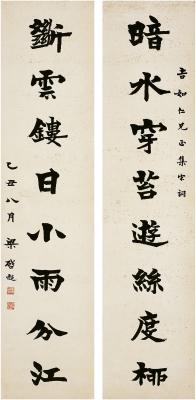 吉如仁兄正集宋詞
暗水穿苔遊絲度柳
斷雲鏤日小雨分江
乙丑八月 梁啟超